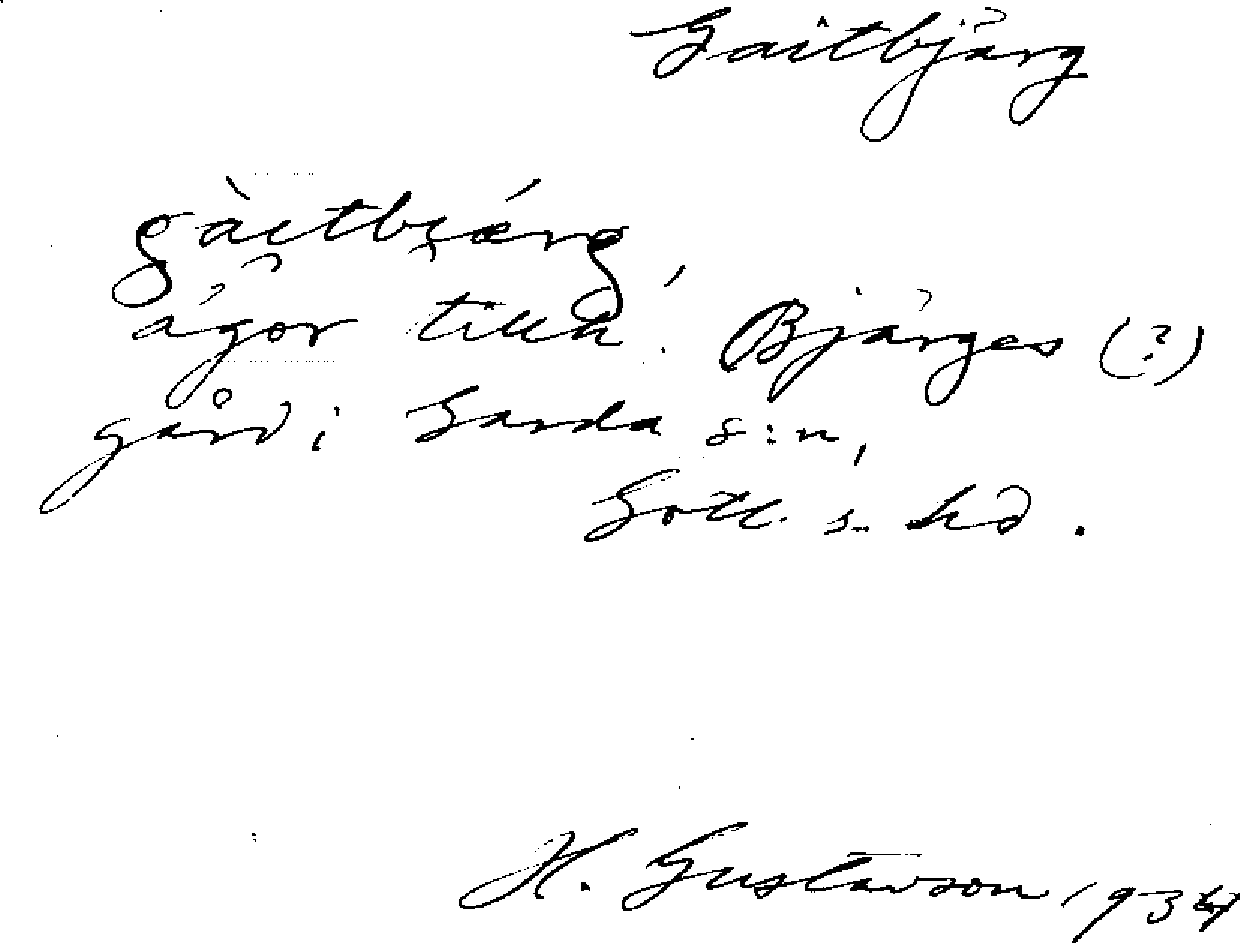 Gaitbjärg
gàitbi̯érg,
ägor tillh. Bjärges (?)
gård i Garda s:n,
Gotl. s. hd.
H. Gustavson 1934